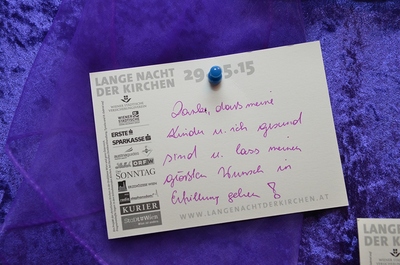 LANGE NACHT
DER KIRCHEN
29 5.15
WIENER
STÄDTISCHE
ERSTE
SPARKASSE
ORF
SONNTAG
KURIER
Danke, dass meine
Kinder u. ich gesund
sind u. lass meinen
größten Wunsch in
Erfüllung gehen
WWW.LANGENACHTDERKIRCHEN.AT
LANGE
DER KI